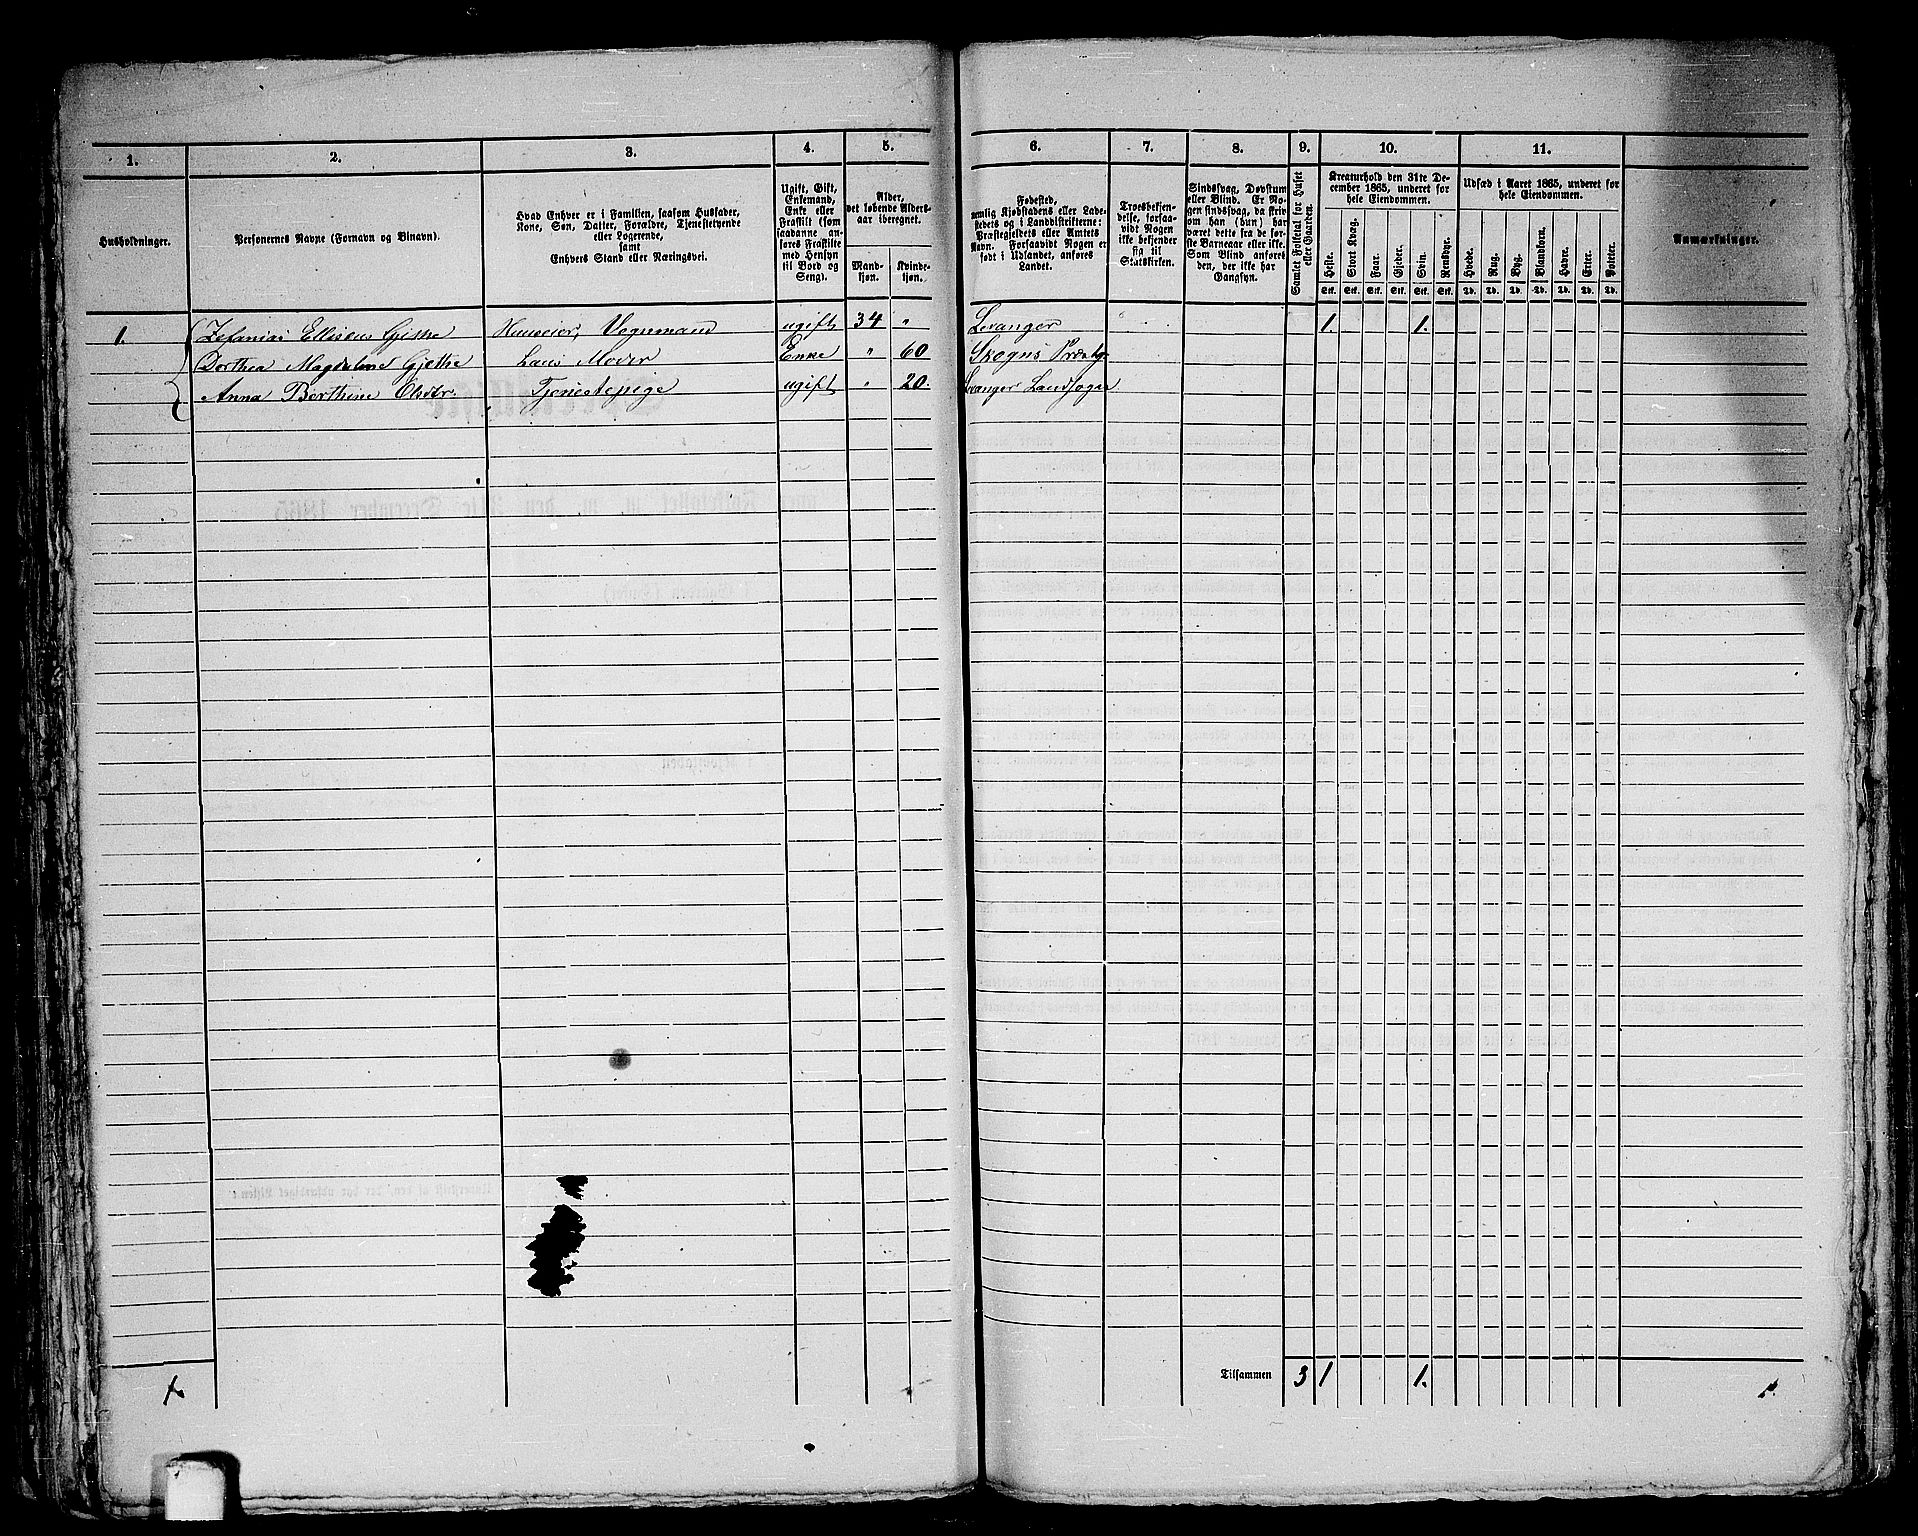 1. 2. 3. 4. 5. 6. 7. 8. 9. 10. 11.
Husholdninger.
Personernes Navne (Fornavn og Binavn).
Hvad Enhver er i Familien, saasom Husfader,
Kone, Søn, Datter, Forældre, Tjenestetyende
eller Logerende,
samt
Enhvers Stand eller Næringsvei.
Ugift, Gift,
Enkemand,
Enke eller
Fraskilt (som
saadanne an-
føres Fraskilte
med Hensyn
til Bord og
Seng).
Alder,
det løbende Alders-
aar iberegnet.
Mand-
kjøn.
Kvinde-
kjøn.
Fødested,
nemlig Kjøbstadens eller Lade-
stedets og i Landdistrikterne:
Præstegjeldets eller Amtets
Navn. Forsaavidt Nogen er
født i Udlandet, anføres
Landet.
Troesbekjen-
delse, forsaa-
vidt Nogen
ikke bekjender
sig til
Statskirken.
Sindssvag, Døvstum
eller Blind. Er No-
gen sindssvag, da skriv
om han (hun) har
været dette fra de før-
ste Barneaar eller ikke.
Som Blind anføres
den, der ikke har
Gangsyn.
Samlet Folketal for Huset
eller Gaarden.
Kreaturhold den 31te De-
cember 1865, underet for
hele Eiendommen.
Heste.
Stort Kvæg.
Faar.
Gjeder.
Svin.
Rensdyr.
Stk. Stk. Stk. Stk. Stk. Stk.
Udsæd i Aaret 1865, underet for
hele Eiendommen.
Hvede.
Rug.
Byg.
Blandkorn.
Havre.
Erter.
Poteter.
Td. Td. Td. Td. Td. Td. Td.
Anmærkninger.
1. Zefanias Elliseus Gjetke Huuseier, Vognmand ugift 34 " Levanger 1. 1.
Dorthea Magdalene Gjetke hans Moder Enke " 60 Skogns Præstg.
Anna Berthine Olsdtr. Tjenestepige ugift " 20. Levanger Landsogn
Tilsammen 3 1 1.